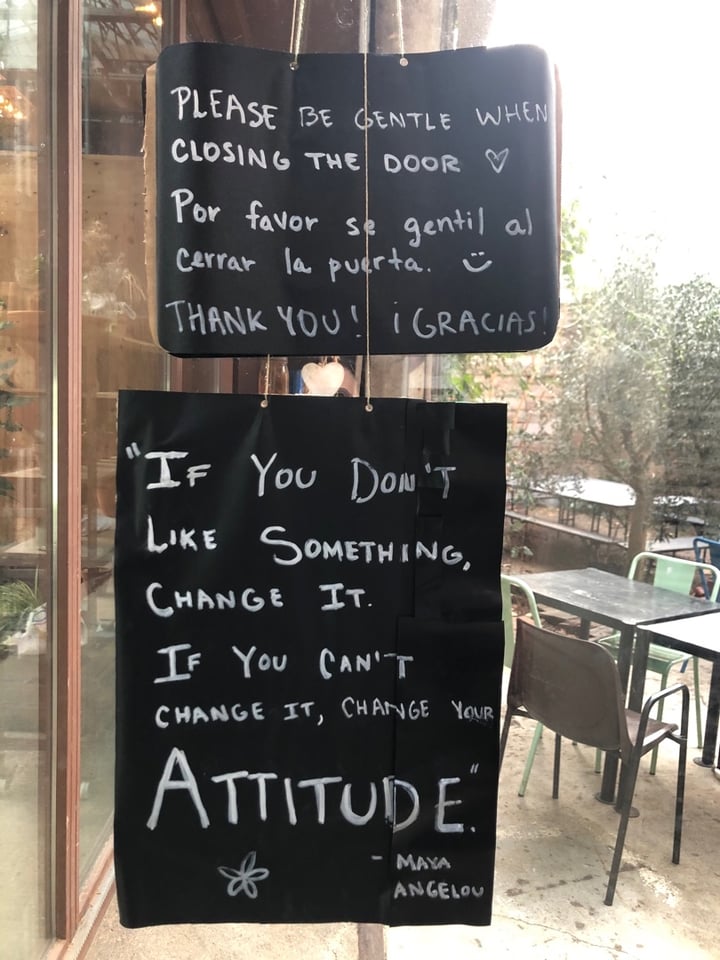 PLEASE BE GENTLE WHEN
CLOSING THE DOOR ♡
Por favor se gentil al
cerrar la puerta.
THANK YOU! ¡GRACIAS!
"IF YOU DON'T
LIKE SOMETHING,
CHANGE IT.
IF YOU CAN'T
CHANGE IT, CHANGE YOUR
ATTITUDE."
- MAYA
ANGELOU